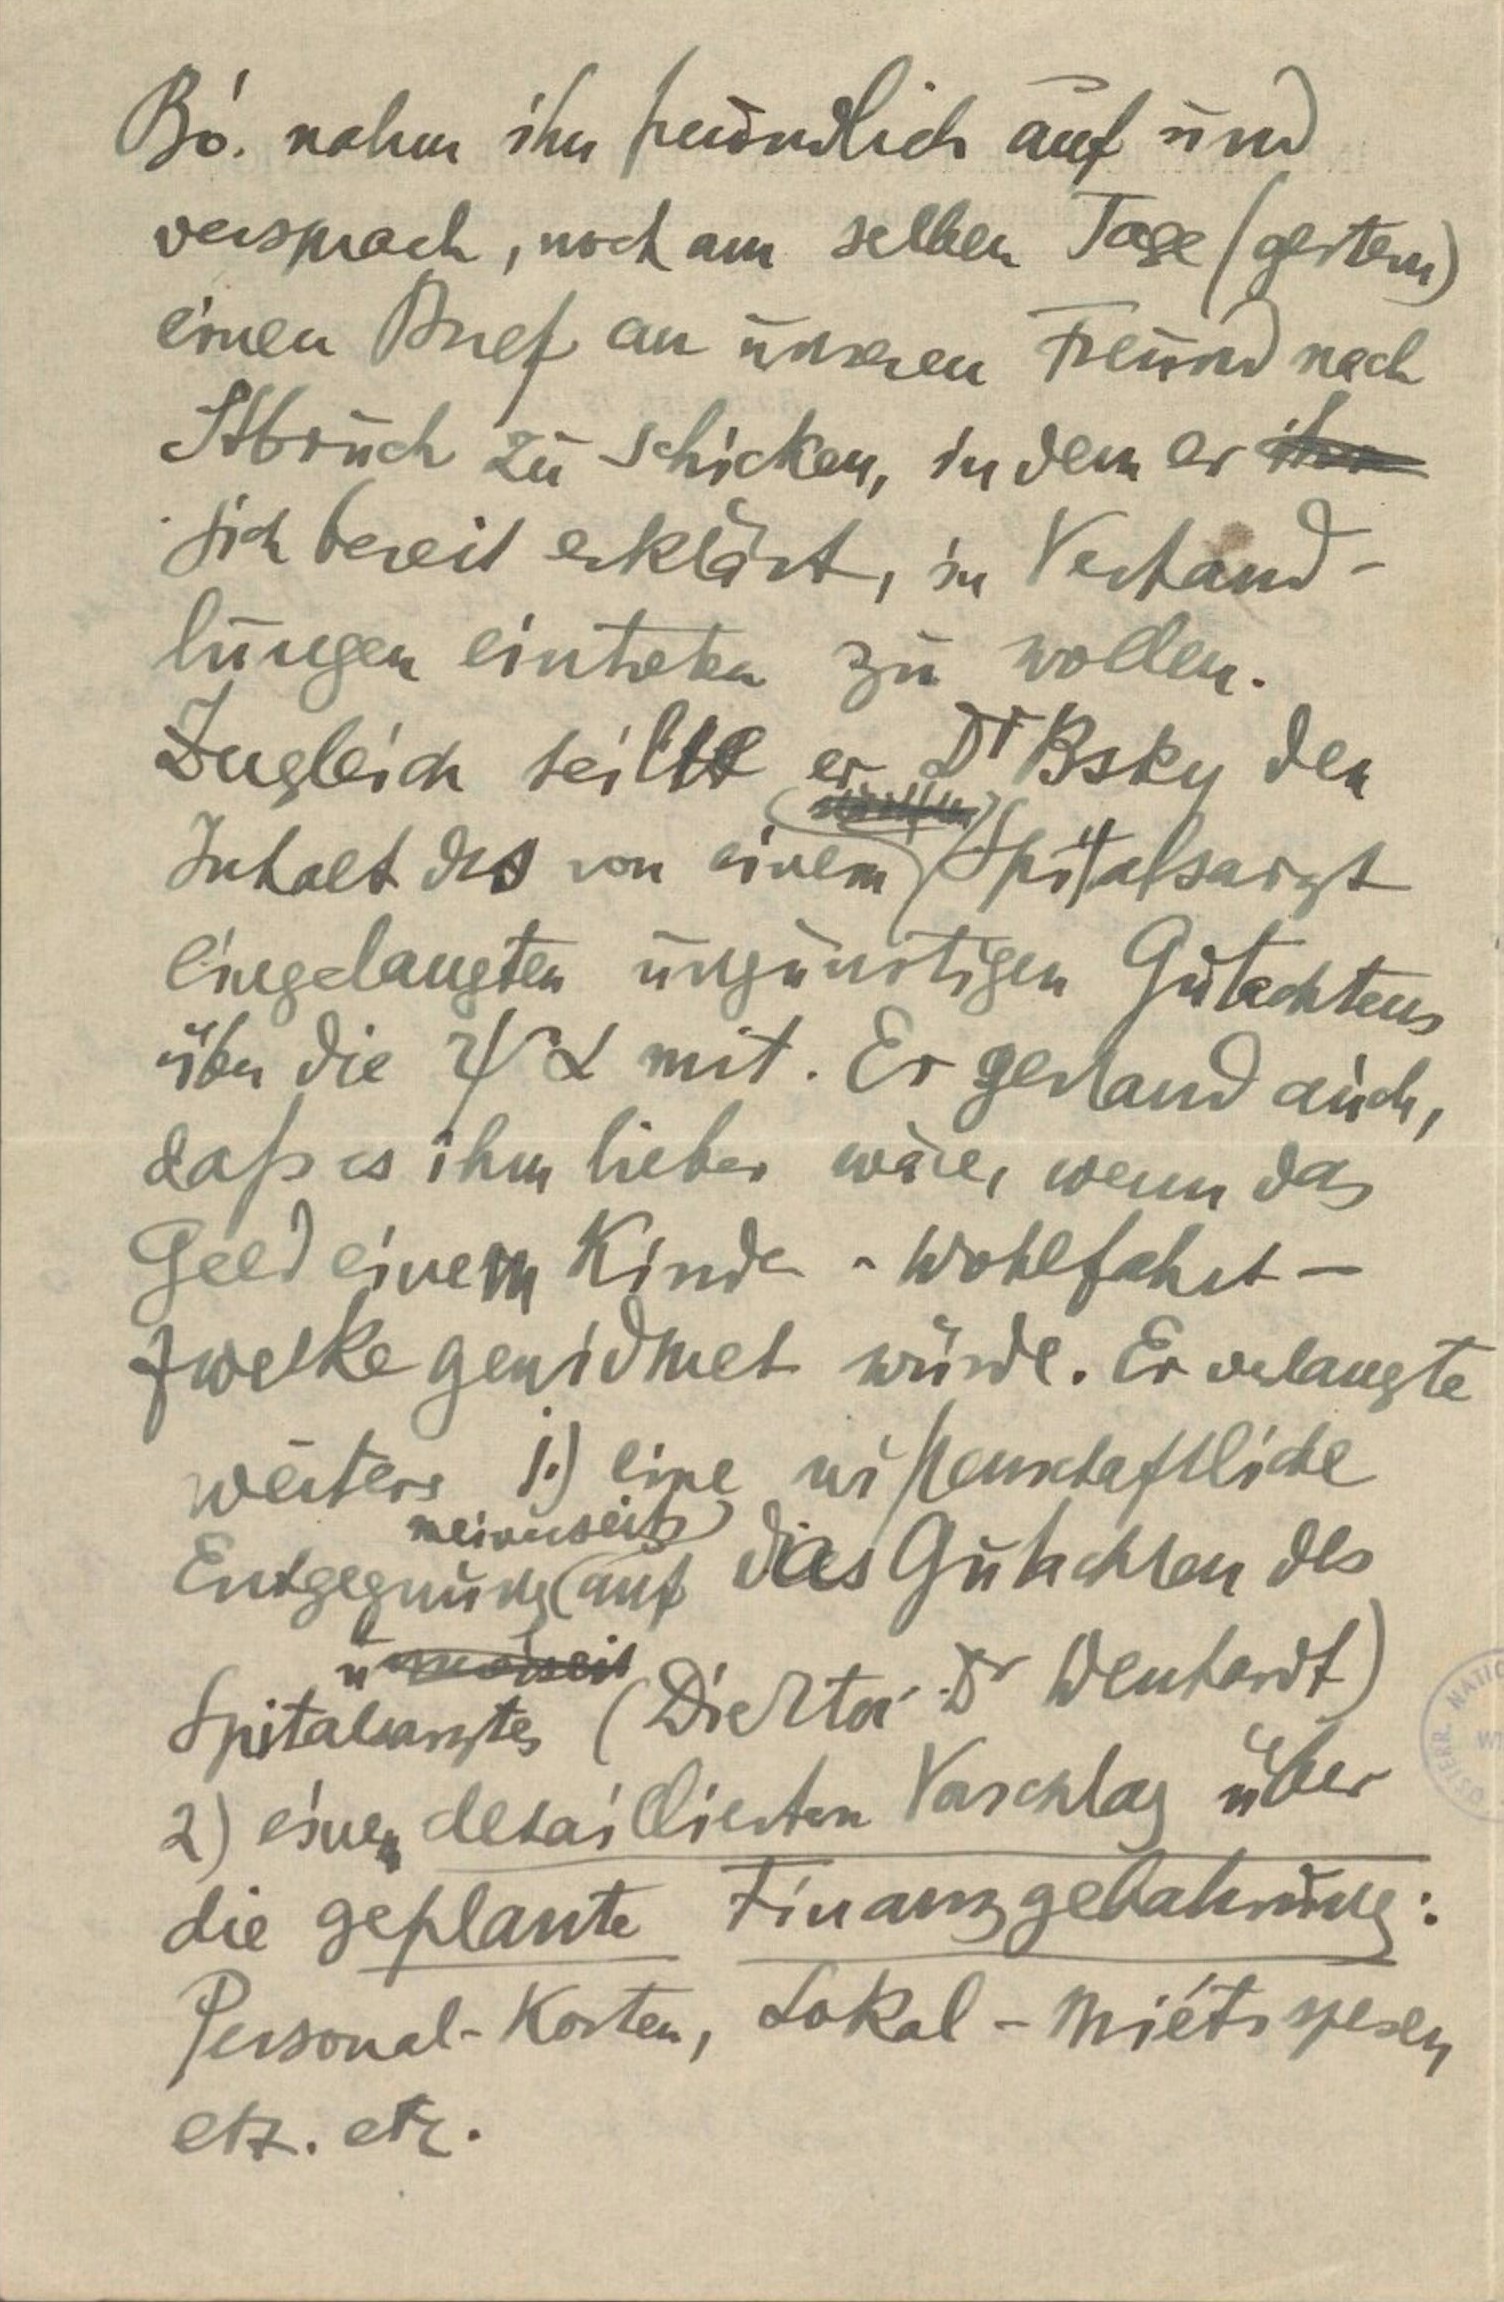 Bó. nahm ihn freundlich auf und
versprach, noch am selben Tage (gestern)
einen Brief an unseren Freund nach
Stbruch zu schicken, in dem er ihn
sich bereit erklärt, in Verhand-
lungen eintreten zu wollen.
Zugleich teilte er Dr Bsky den
Inhalt des von einem Spitalsarzt
eingelangten ungünstigen Gutachtens
über die ψα mit. Er gestand auch,
daß es ihm lieber wäre, wenn das
Geld einem Kinder-Wohlfahrt-
zwecke gewidmet würde. Er verlangte
weiters 1.) eine wissenschaftliche
meinerseits
Entgegnung auf das Gutachten des
Spitalsarztes (Direktor Dr Wenhardt)
2) einen detaillierten Vorschlag über
die geplante Finanzgebahrung:
Personal-Kosten, Lokal-Mietsspesen
etz. etz.